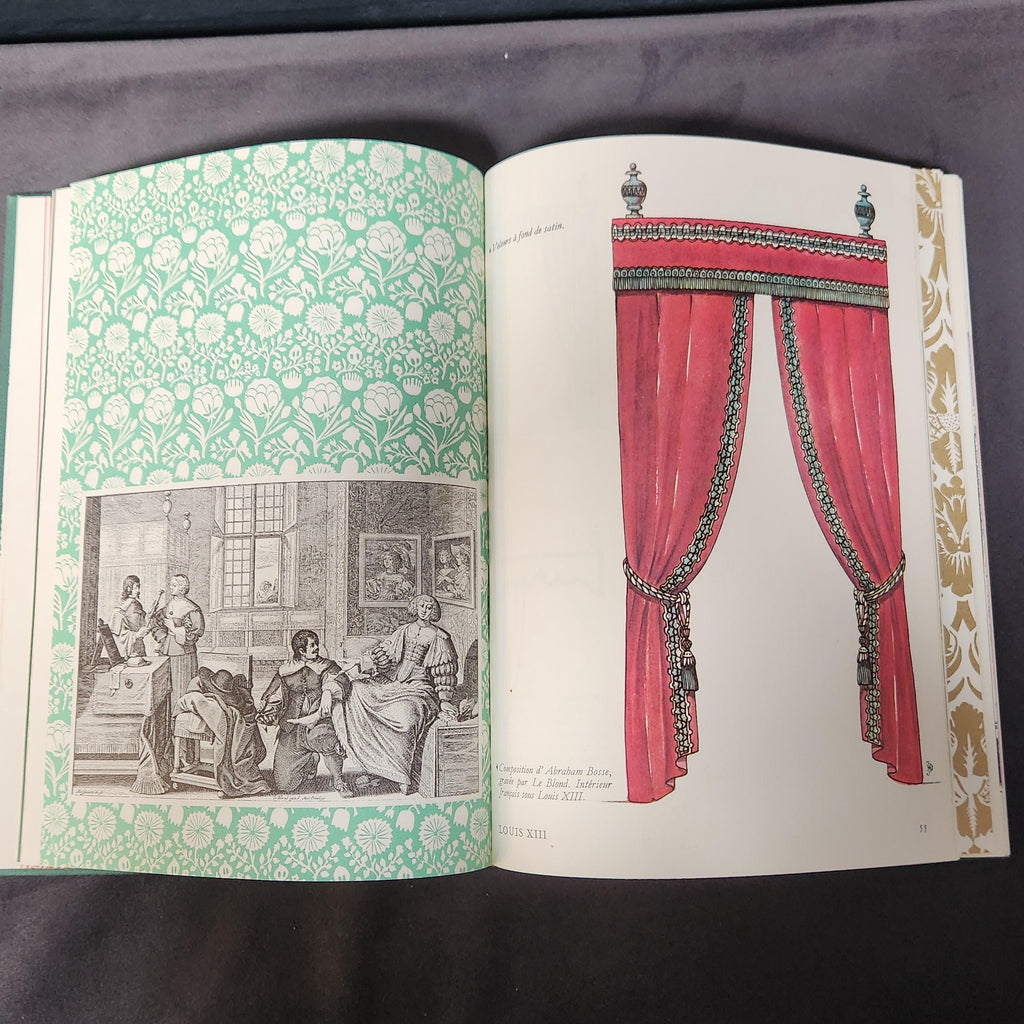 Velours à fond de satin.
Composition d'Abraham Bosse,
gravée par Le Blond. Intérieur
français sous Louis XIII.
LOUIS XIII
55